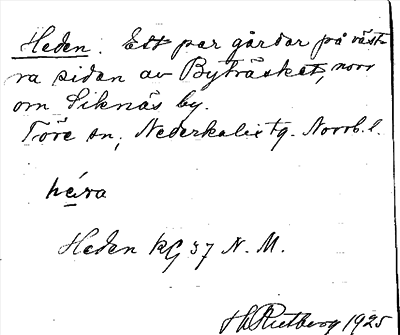 Heden: Ett par gårdar på väst-
ra sidan av Byträsket, norr
om Siknäs by.
Töre sn, Nederkalix tg. Norrb. l.
héra
Heden KG 37 N. M.
Rutberg 1925